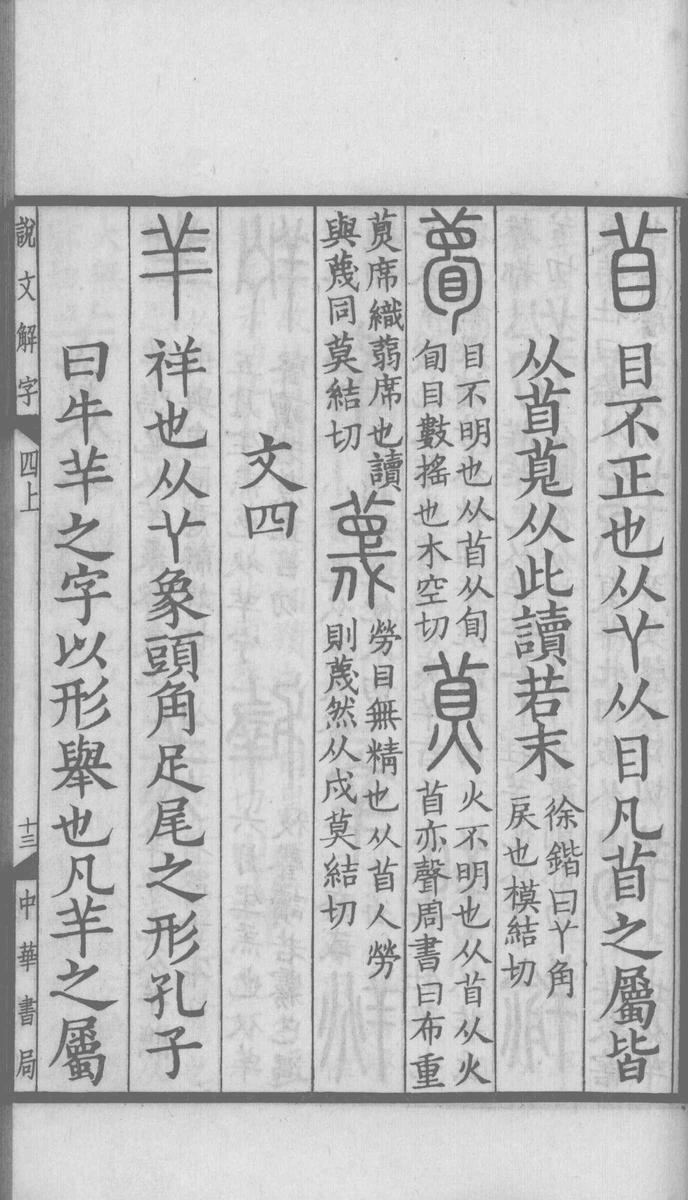 𥄕目不正也从𦫳从目凡𥄕之屬皆
从𥄕莧从此讀若末
徐鍇曰𦫳角
戾也模結切
瞢
目不明也从𥄕从旬
旬目數搖也木空切
𦻀
火不明也从𥄕从火
𥄕亦聲周書曰布重
𦻀席織蒻席也讀
與蔑同莫結切
蔑
勞目無精也从𥄕人勞
則蔑然从戍莫結切
文四
羊祥也从𦫳象頭角足尾之形孔子
曰牛羊之字以形舉也凡羊之屬
說文解字
四上
十三
中華書局